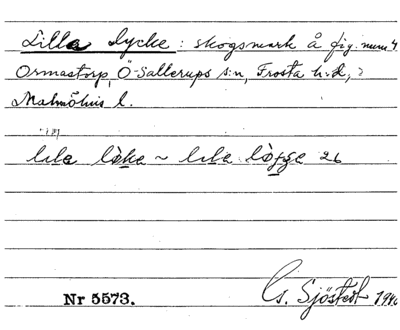 Lilla Lycke: skogsmark å fig. num 4
Ormastorp, Ö-Sallerups s:n, Frosta h:d,
Malmöhus l.
lila løka ~ lila løgge 26
Nr 5573.
G. Sjöstedt 1940